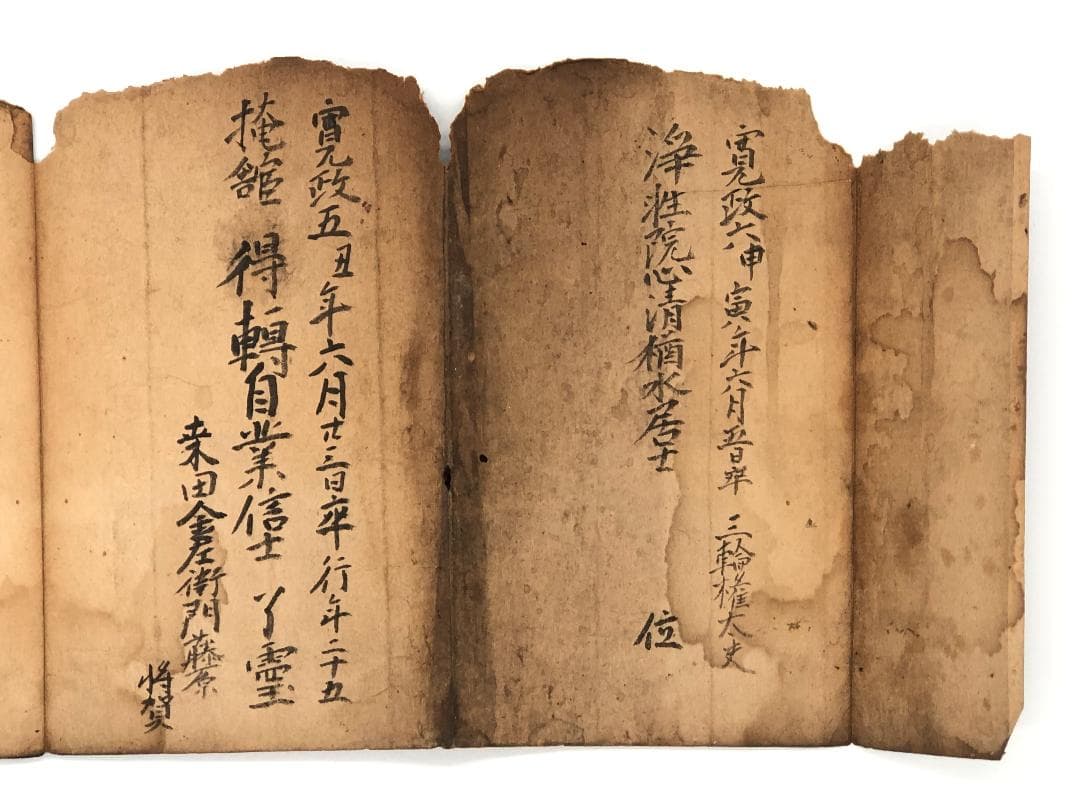 寛政六甲寅年六月五日卒 三輪権大夫
淨性院心清楢水居士 位
寛政五丑年六月廿三日卒 行年二十五
掩舘 得轉自業信士 丫霊
桒田金左衛門藤原
将賀